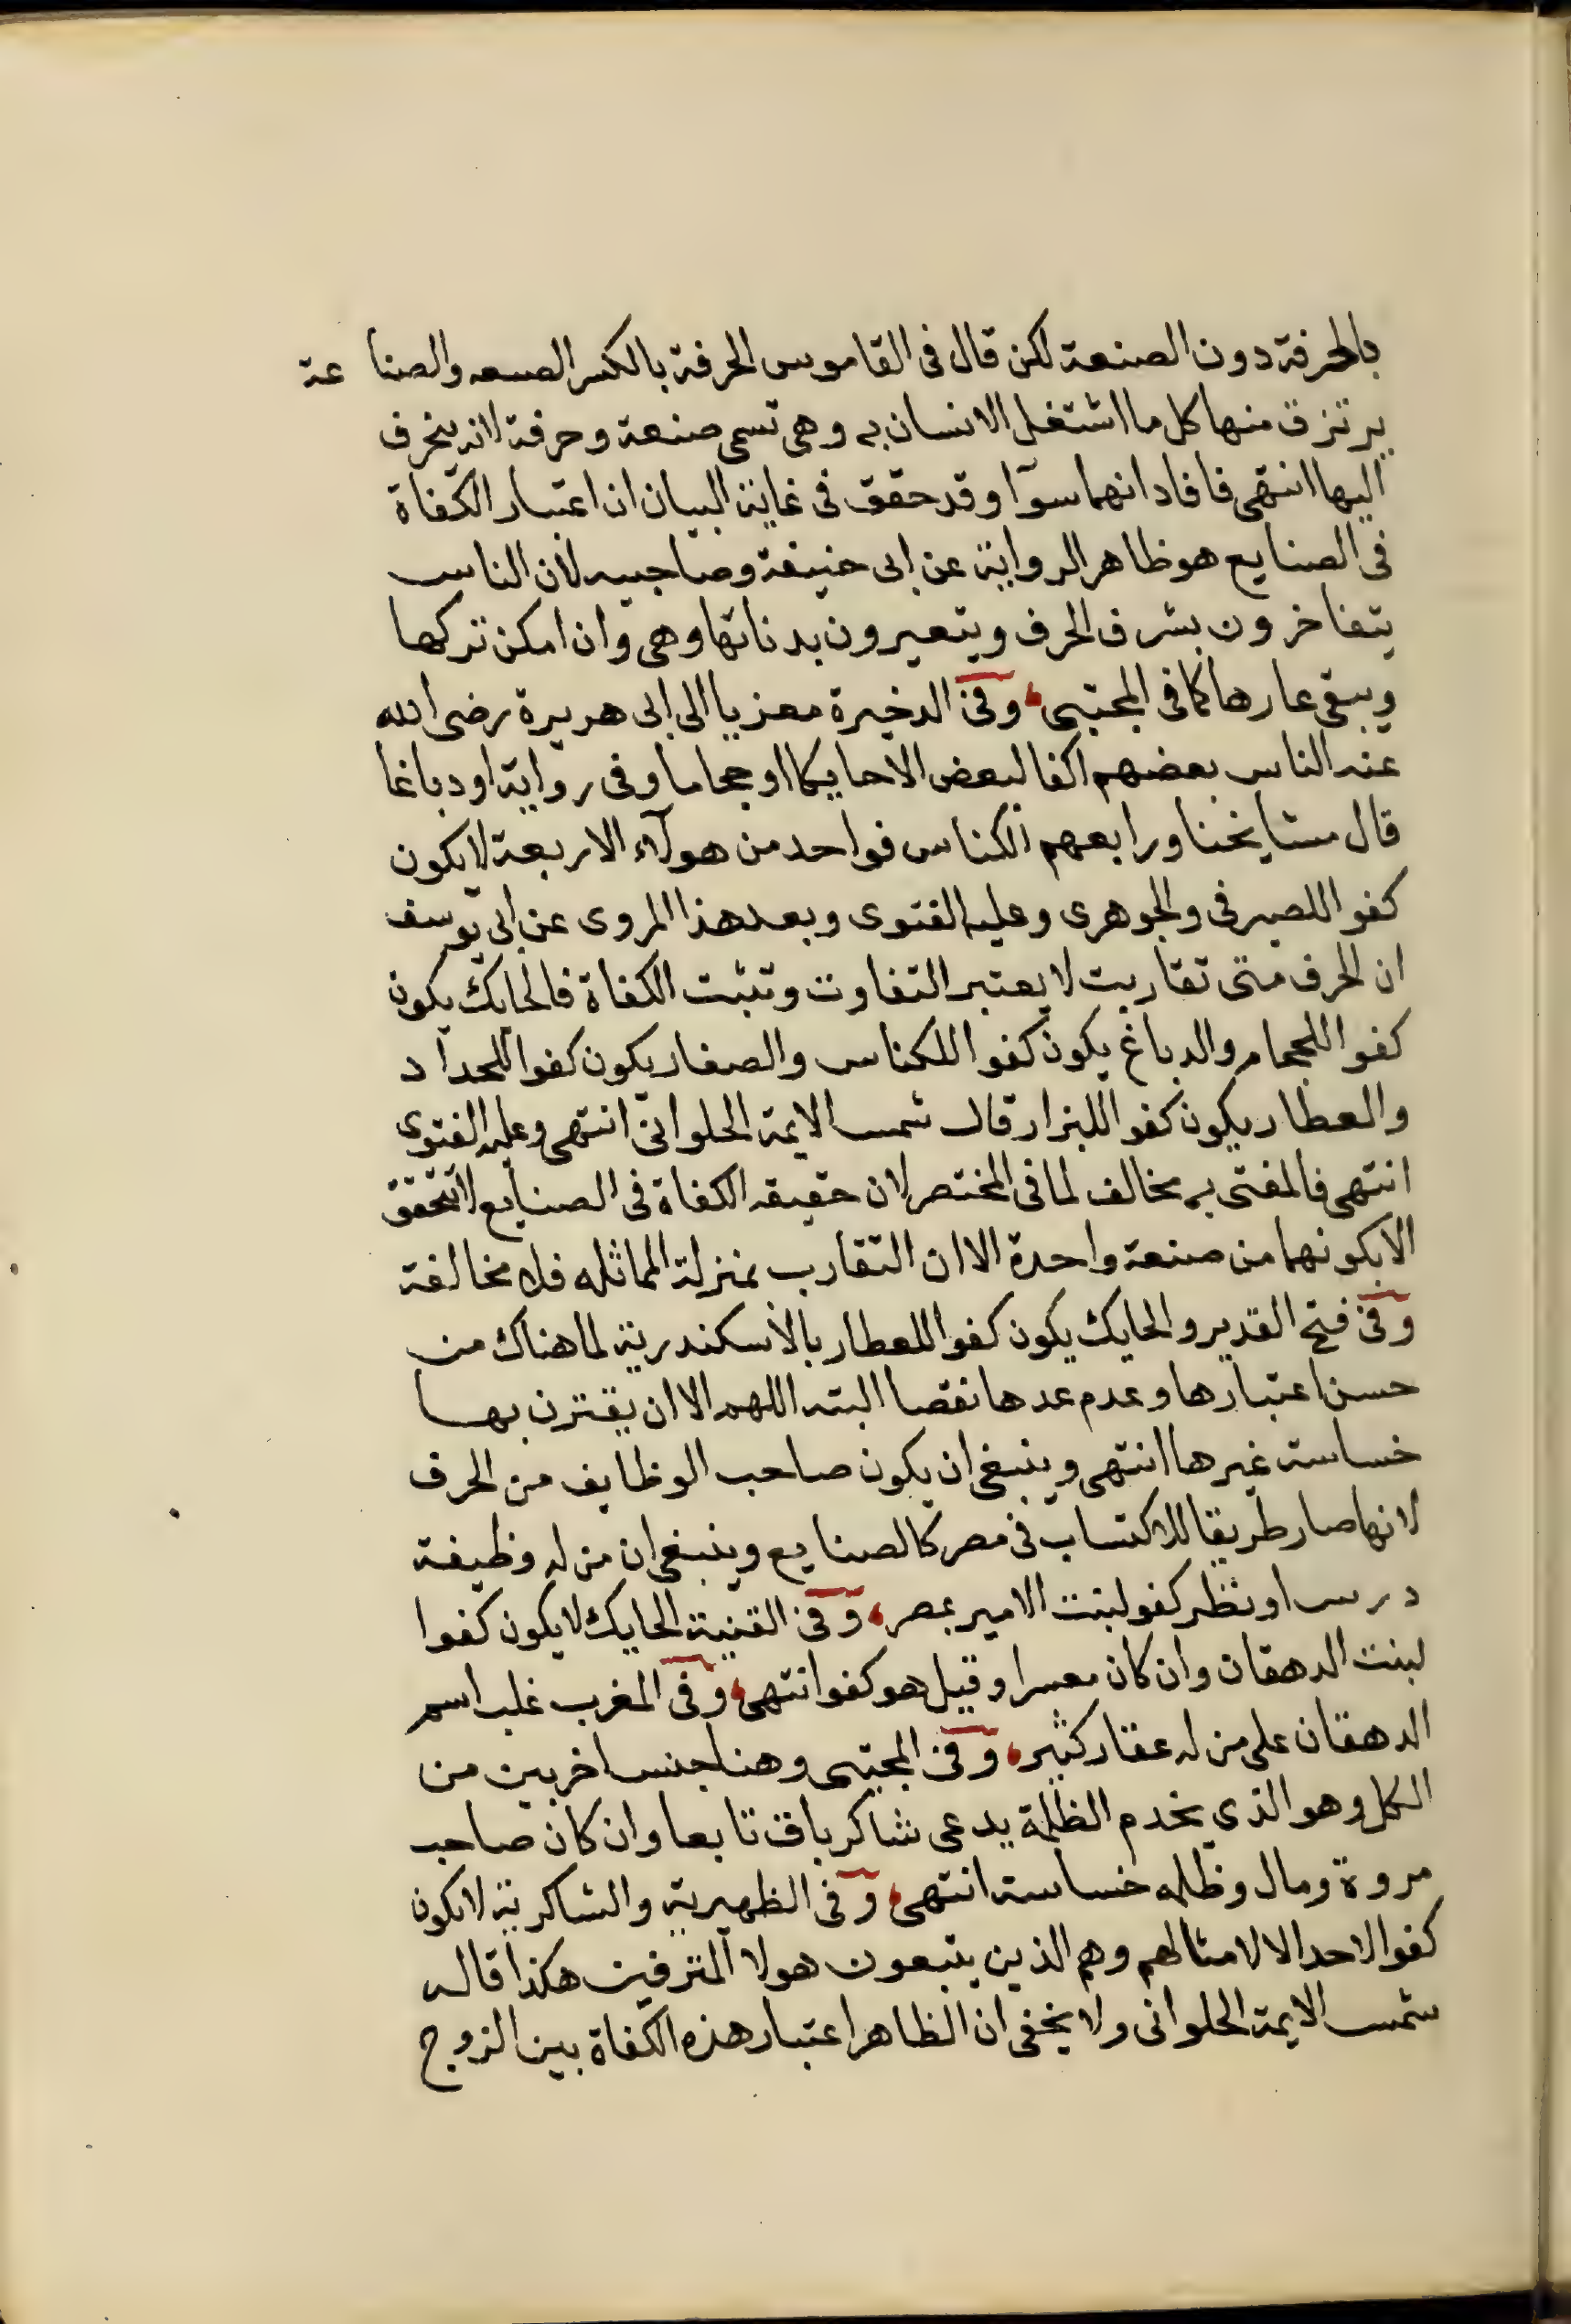 بالحرفة دون الصنعة لكن قال فى القاموس الحرفة بالكسر الصنعه والصناعة
يرتزق منها كل ما اشتغل الانسان به وهى تسمى صنعة وحرفة لانه ينحرف
اليها انتهى فافاد انهما سوآ وقد حقق فى غاية البيان ان اعتبار الكفاة
فى الصنايع هو ظاهر الرواية عن ابى حنيفة وصاحبيه لان الناس
يتفاخرون بشرف الحرف ويتعيرون بدناتها وهى وان امكن تركها
ويبقى عارها كما فى المجتبى وفى الدخيرة معزيا الى ابى هريرة رضى الله
عنه الناس بعضهم اكفا لبعض الا حايكا او حجاما وفى رواية او دباغا
قال مشايخنا ورابعهم الكناس فواحد من هولآء الاربعة لا يكون
كفوا للصيرفى والجوهرى وعليه الفتوى وبعد هذا المروى عن ابى يوسف
ان الحرف متى تقاربت لا يعتبر التفاوت وتثبت الكفاة فالحايك يكون
كفوا للحجام والدباغ يكون كفوا للكناس والصفار يكون كفوا للحداد
والعطار يكون كفوا للبزار قال شمس الايمة الحلوانى انتهى وعليه الفتوى
انتهى فالمفتى به مخالف لما فى المختصر لان حقيقه الكفاة فى الصنايع لا تتحقق
الا بكونهما من صنعة واحدة الا ان التقارب بمنزلة المماثله فلا مخالفة
وفى فتح القدير والحايك يكون كفوا للعطار بالاسكندرية لما هناك من
حسن اعتبارها وعدم عدها نقصا البته اللهم الا ان يقترن بها
خساسة غيرها انتهى وينبغى ان يكون صاحب الوظايف من الحرف
لانها صار طريقا للاكتساب فى مصر كالصنايع وينبغى ان من له وظيفة
درس او نظر كفو لبنت الامير بمصر وفى القنية الحايك لا يكون كفوا
لبنت الدهقان وان كان معسرا وقيل هو كفو انتهى وفى المغرب غلب اسم
الدهقان على من له عقار كثير وفى المجتبى وهنا جنس اخر بين من
الكل وهو الذي يخدم الظلمة يدعى شاكر باق تابعا وان كان صاحب
مروة ومال وظله خساسة انتهى وفى الظهيرية والشاكرية لا يكون
كفوا لاحد الا لامثالهم وهم الذين يتبعون هولا المترفين هكذا قاله
شمس الايمة الحلوانى ولا يخفى ان الظاهر اعتبار هذه الكفاة بين الزوج